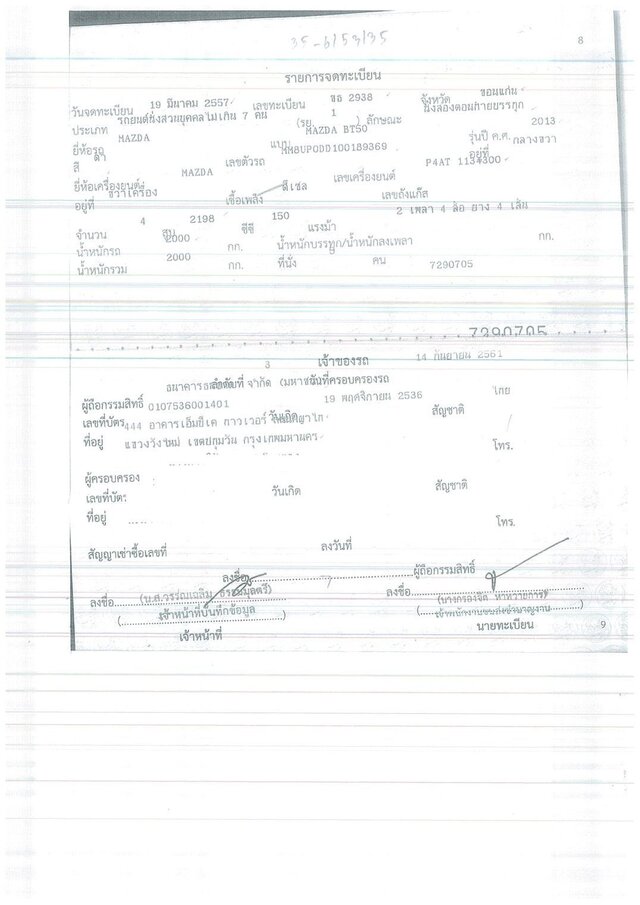 8
รายการจดทะเบียน
วันจดทะเบียน 19 มีนาคม 2557 เลขทะเบียน ขอ 2938 จังหวัด ขอนแก่น
ประเภท รถยนต์นั่งส่วนบุคคลไม่เกิน 7 คน (รย. 1 ) ลักษณะ นั่งสองตอนท้ายบรรทุก
ยี่ห้อรถ MAZDA แบบ MAZDA BT50 รุ่นปี ค.ศ. 2013
สี ดำ เลขตัวรถ MM8UP0DD100189369 อยู่ที่ กลางขวา
ยี่ห้อเครื่องยนต์ MAZDA เลขเครื่องยนต์ P4AT
อยู่ที่ ขวาเครื่อง เชื้อเพลิง ดีเซล เลขถังแก๊ส
จำนวน 4 สูบ 2198 ซีซี 150 แรงม้า 2 เพลา 4 ล้อ ยาง 4 เส้น
น้ำหนักรถ 2000 กก. น้ำหนักบรรทุก/น้ำหนักลงเพลา กก.
น้ำหนักรวม 2000 กก. ที่นั่ง คน 7290705
7290705
เจ้าของรถ
ลำดับที่ 3 วันที่ครอบครองรถ 14 กันยายน 2561
ผู้ถือกรรมสิทธิ์ ธนาคาร จำกัด
เลขที่บัตร 0107536001401 วันเกิด 19 พฤศจิกายน 2536 สัญชาติ ไทย
ที่อยู่ 444 อาคารเอ็มบีเค ทาวเวอร์
แขวงวังใหม่ เขตปทุมวัน กรุงเทพมหานคร โทร.
ผู้ครอบครอง
เลขที่บัตร วันเกิด สัญชาติ
ที่อยู่ โทร.
สัญญาเช่าซื้อเลขที่ ลงวันที่
ลงชื่อ ผู้ถือกรรมสิทธิ์
ลงชื่อ ลงชื่อ
เจ้าหน้าที่บันทึกข้อมูล
เจ้าหน้าที่ นายทะเบียน 9